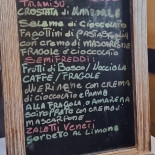 TIRAMISU
CROSTATA di
Salame di cioccolato
Fagottini di PASTASFOGLIA
con crema di MASCARPONE
FRAGOLE e cioccolato
SEMIFREDDI:
Frutti di Bosco / Nocciola
CAFFÉ / FRAGOLE
MERINGHE con CREMA
di cioccolato e PANNA
ALLA FRAGOLA o AMARENA
SCIROPPATA con CREMA di
MASCARPONE
ZALETTI VENETI
SORBETTO AL LIMONE